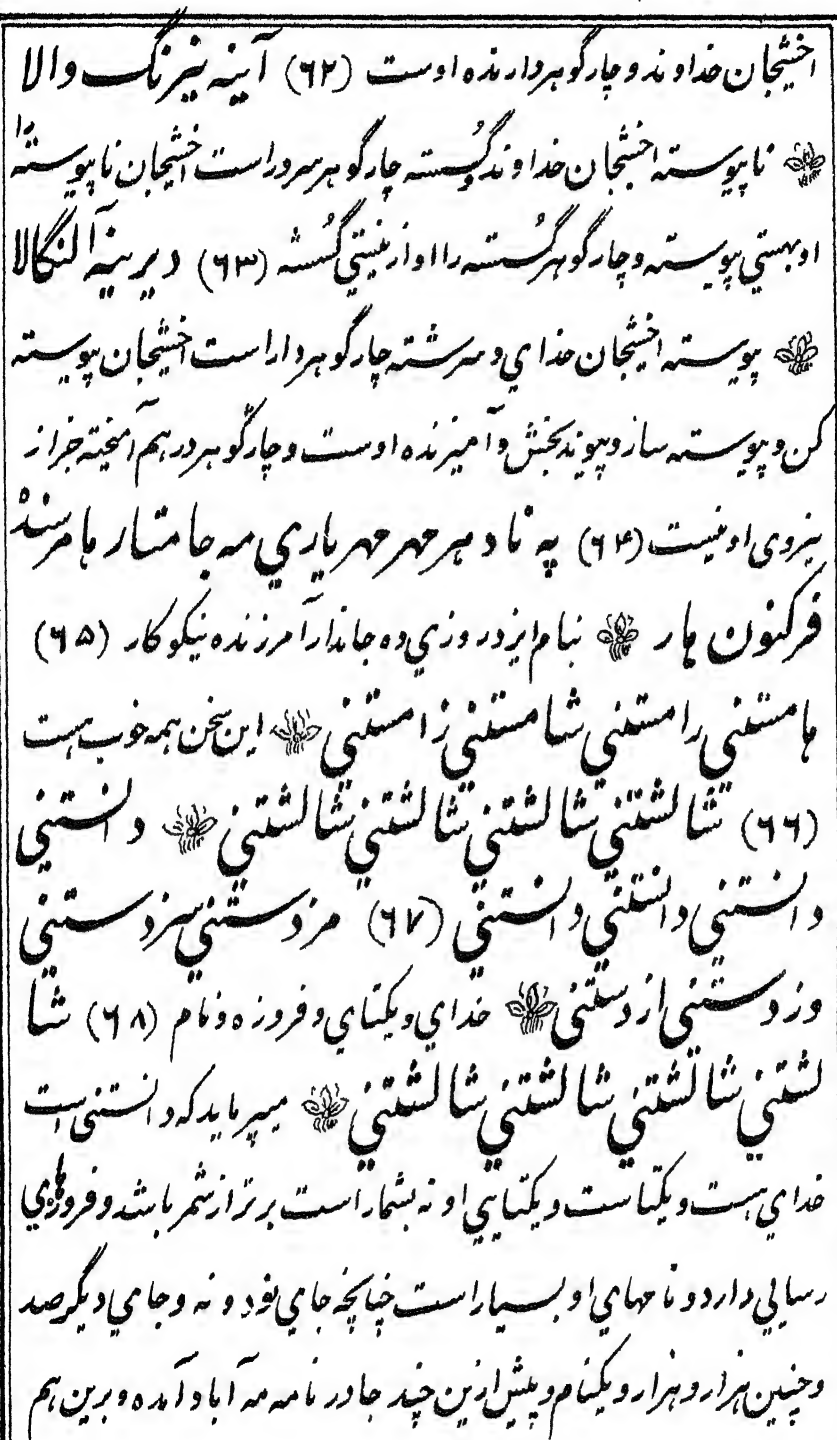 اخشیجان خداوند و چار گوهر دارنده اوست (۶۲) آینه نیرنگ والا
ناپیوسته اخشیجان خداوند و گسسته چار گوهر سرور است اخشیجان ناپیوسته را
او بهستی پیوسته و چار گوهر گسسته را او از نیستی گسسته (۶۳) دیرینه آلنگالا
پیوسته اخشیجان خدای و سرشته چار گوهر دار است اخشیجان پیوسته
کن و پیوسته ساز و پیوند بخش و آمیزنده اوست و چار گوهر در هم آمیخته جز از
نیروی او نیست (۶۴) په ناد هر مهر مهریاری مه جامتار هامرسنده
فرکنون هار بنام ایزد روزی ده جاندار آمرزنده نیکوکار (۶۵)
هامستنی رامستنی شامستنی زامستنی این سخن همه خوب هست
(۶۶) شالشتنی شالشتنی شالشتنی شالشتنی دانستنی
دانستنی دانستنی دانستنی (۶۷) مزدستنی سزدستنی
وزدستنی ازدستنی خدای و یکتای و فروزه و نام (۶۸) شا
لشتنی شالشتنی شالشتنی شالشتنی میپرماید که دانستنی است
خدای هست و یکتاست و یکتایی او نه بشمار است برتر از شمر باشد و فروزهای
رسایی دارد و نامهای او بسیار است چنانچه جای نود و نه و جای دیگر صد
و چنین هزار و هزار و یکنام و پیش ازین چند جا در نامه مه آباد آمده و برین هم